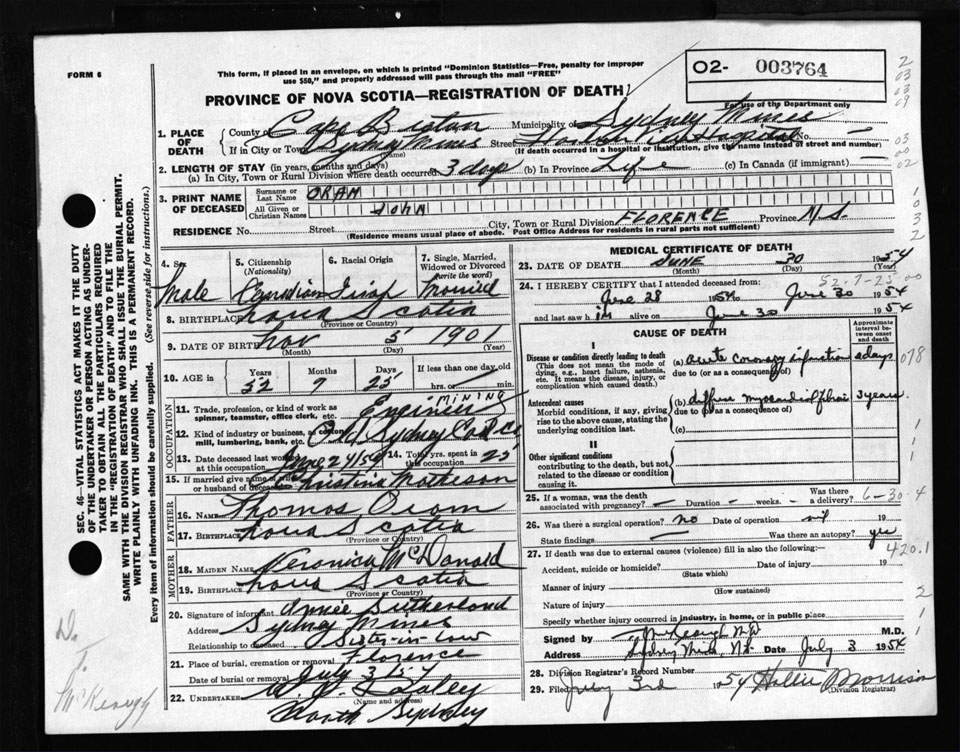 FORM 6
This form, if placed in an envelope, on which is printed "Dominion Statistics—Free, penalty for improper
use $50," and properly addressed will pass through the mail "FREE"
O2- 003764
For use of the Department only
PROVINCE OF NOVA SCOTIA—REGISTRATION OF DEATH
1. PLACE OF DEATH
County of Cape Breton Municipality of Sydney Mines
If in City or Town Sydney Mines Street Hospital No.
(Name) (If death occurred in a hospital or institution, give the name instead of street and number)
2. LENGTH OF STAY (in years, months and days)
(a) In City, Town or Rural Division where death occurred 3 days (b) In Province Life (c) In Canada (if immigrant) —
3. PRINT NAME OF DECEASED
Surname or Last Name ORAM
All Given or Christian Names JOHN
RESIDENCE No. Street City, Town or Rural Division FLORENCE Province N.S.
(Residence means usual place of abode. Post Office Address for residents in rural parts not sufficient)
4. Sex Male
5. Citizenship (Nationality) Canadian
6. Racial Origin Irish
7. Single, Married, Widowed or Divorced (Write the word) Married
8. BIRTHPLACE Nova Scotia
(Province or Country)
9. DATE OF BIRTH Nov 5 1901
(Month) (Day) (Year)
10. AGE in Years Months Days If less than one day old
52 7 25 hrs. or min.
OCCUPATION
11. Trade, profession, or kind of work as spinner, teamster, office clerk, etc. MINING Engineer
12. Kind of industry or business, as cotton mill, lumbering, bank, etc. Old Sydney Coal Co
13. Date deceased last worked at this occupation June 24/54
14. Total yrs. spent in this occupation 25
15. If married give name of husband or wife of deceased Christina Matheson
FATHER
16. Name Thomas Oram
17. Birthplace Nova Scotia
(Province or Country)
MOTHER
18. MAIDEN NAME Veronica McDonald
19. BIRTHPLACE Nova Scotia
(Province or Country)
20. Signature of informant Annie Sutherland
Address Sydney Mines
Relationship to deceased Sister-in-law
21. Place of burial, cremation or removal Florence
Date of burial or removal July 3
22. UNDERTAKER
(Name and address)
North Sydney
MEDICAL CERTIFICATE OF DEATH
23. DATE OF DEATH JUNE 30 1954
(Month) (Day) (Year)
24. I HEREBY CERTIFY that I attended deceased from:
June 28 1954 to June 30 1954
and last saw him alive on June 30 1954
CAUSE OF DEATH
Approximate interval between onset and death
I
Disease or condition directly leading to death
(This does not mean the mode of dying, e.g., heart failure, asthenia, etc. It means the disease, injury, or complication which caused death.)
(a) acute coronary infarction 2 days
due to (or as a consequence of)
078
Antecedent causes
Morbid conditions, if any, giving rise to the above cause, stating the underlying condition last.
(b) diffuse myocardial fibrosis 3 years
due to (or as a consequence of)
(c)
II
Other significant conditions
contributing to the death, but not related to the disease or condition causing it.
25. If a woman, was the death associated with pregnancy? – Duration – weeks. – Was there a delivery?
6-30-4
26. Was there a surgical operation? no Date of operation nil 19
State findings — Was there an autopsy? yes
420.1
27. If death was due to external causes (violence) fill in also the following:—
Accident, suicide or homicide? Date of injury 19
(State which)
Manner of injury
(How sustained)
Nature of injury
Specify whether injury occurred in industry, in home, or in public place
Signed by M.D.
Address Sydney Mines, N.S. Date July 3 1954
28. Division Registrar's Record Number
29. Filed July 3rd 1954 Morrison
(Division Registrar)
SEC. 46—VITAL STATISTICS ACT MAKES IT THE DUTY
OF THE UNDERTAKER OR PERSON ACTING AS UNDER-
TAKER TO OBTAIN ALL THE PARTICULARS REQUIRED
IN THE "REGISTRATION OF DEATH" AND TO FILE THE
SAME WITH THE DIVISION REGISTRAR WHO SHALL ISSUE THE BURIAL PERMIT.
WRITE PLAINLY WITH UNFADING INK. THIS IS A PERMANENT RECORD.
Every item of information should be carefully supplied. (See reverse side for instructions.)